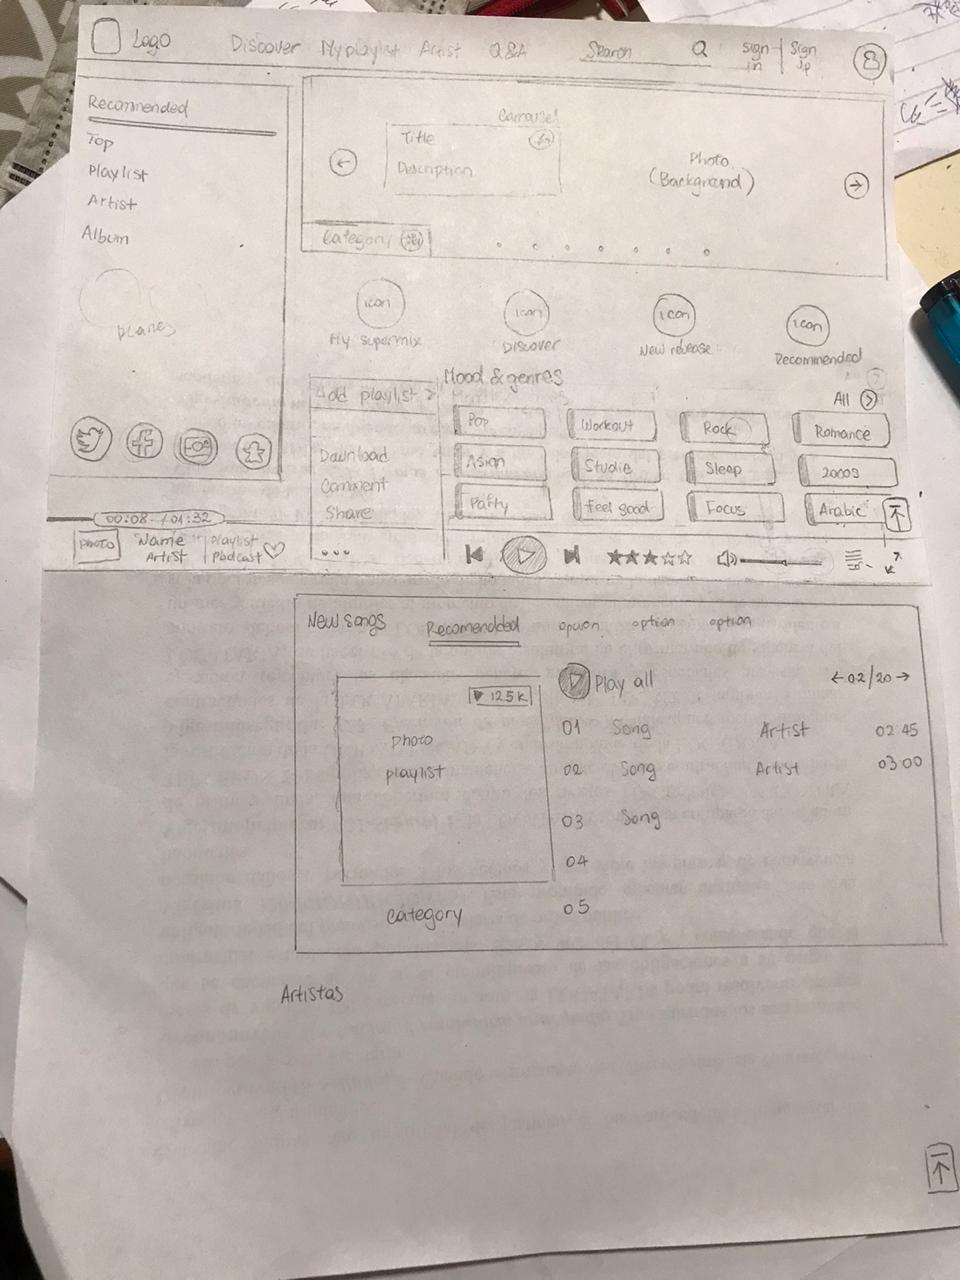 Logo
Discover My playlist Artist Q&A Search Sign in Sign up
Recommended
Top
Playlist
Artist
Album
planes
Carrousel
Title
Description
Photo
(Background)
Category
icon icon icon icon
My supermix Discover New release Recommended
Add playlist >
Download
Comment
Share
...
Mood & genres
All
Pop Workout Rock Romance
Asian Studie Sleep 2000s
Party Feel good Focus Arabic
00:08 / 01:32
PHOTO Name Playlist
Artist Podcast
New songs Recomended option option option
125K
Photo
playlist
category
Play all ←02/20→
01 Song Artist 02 45
02 Song Artist 03 00
03 Song
04
05
Artistas